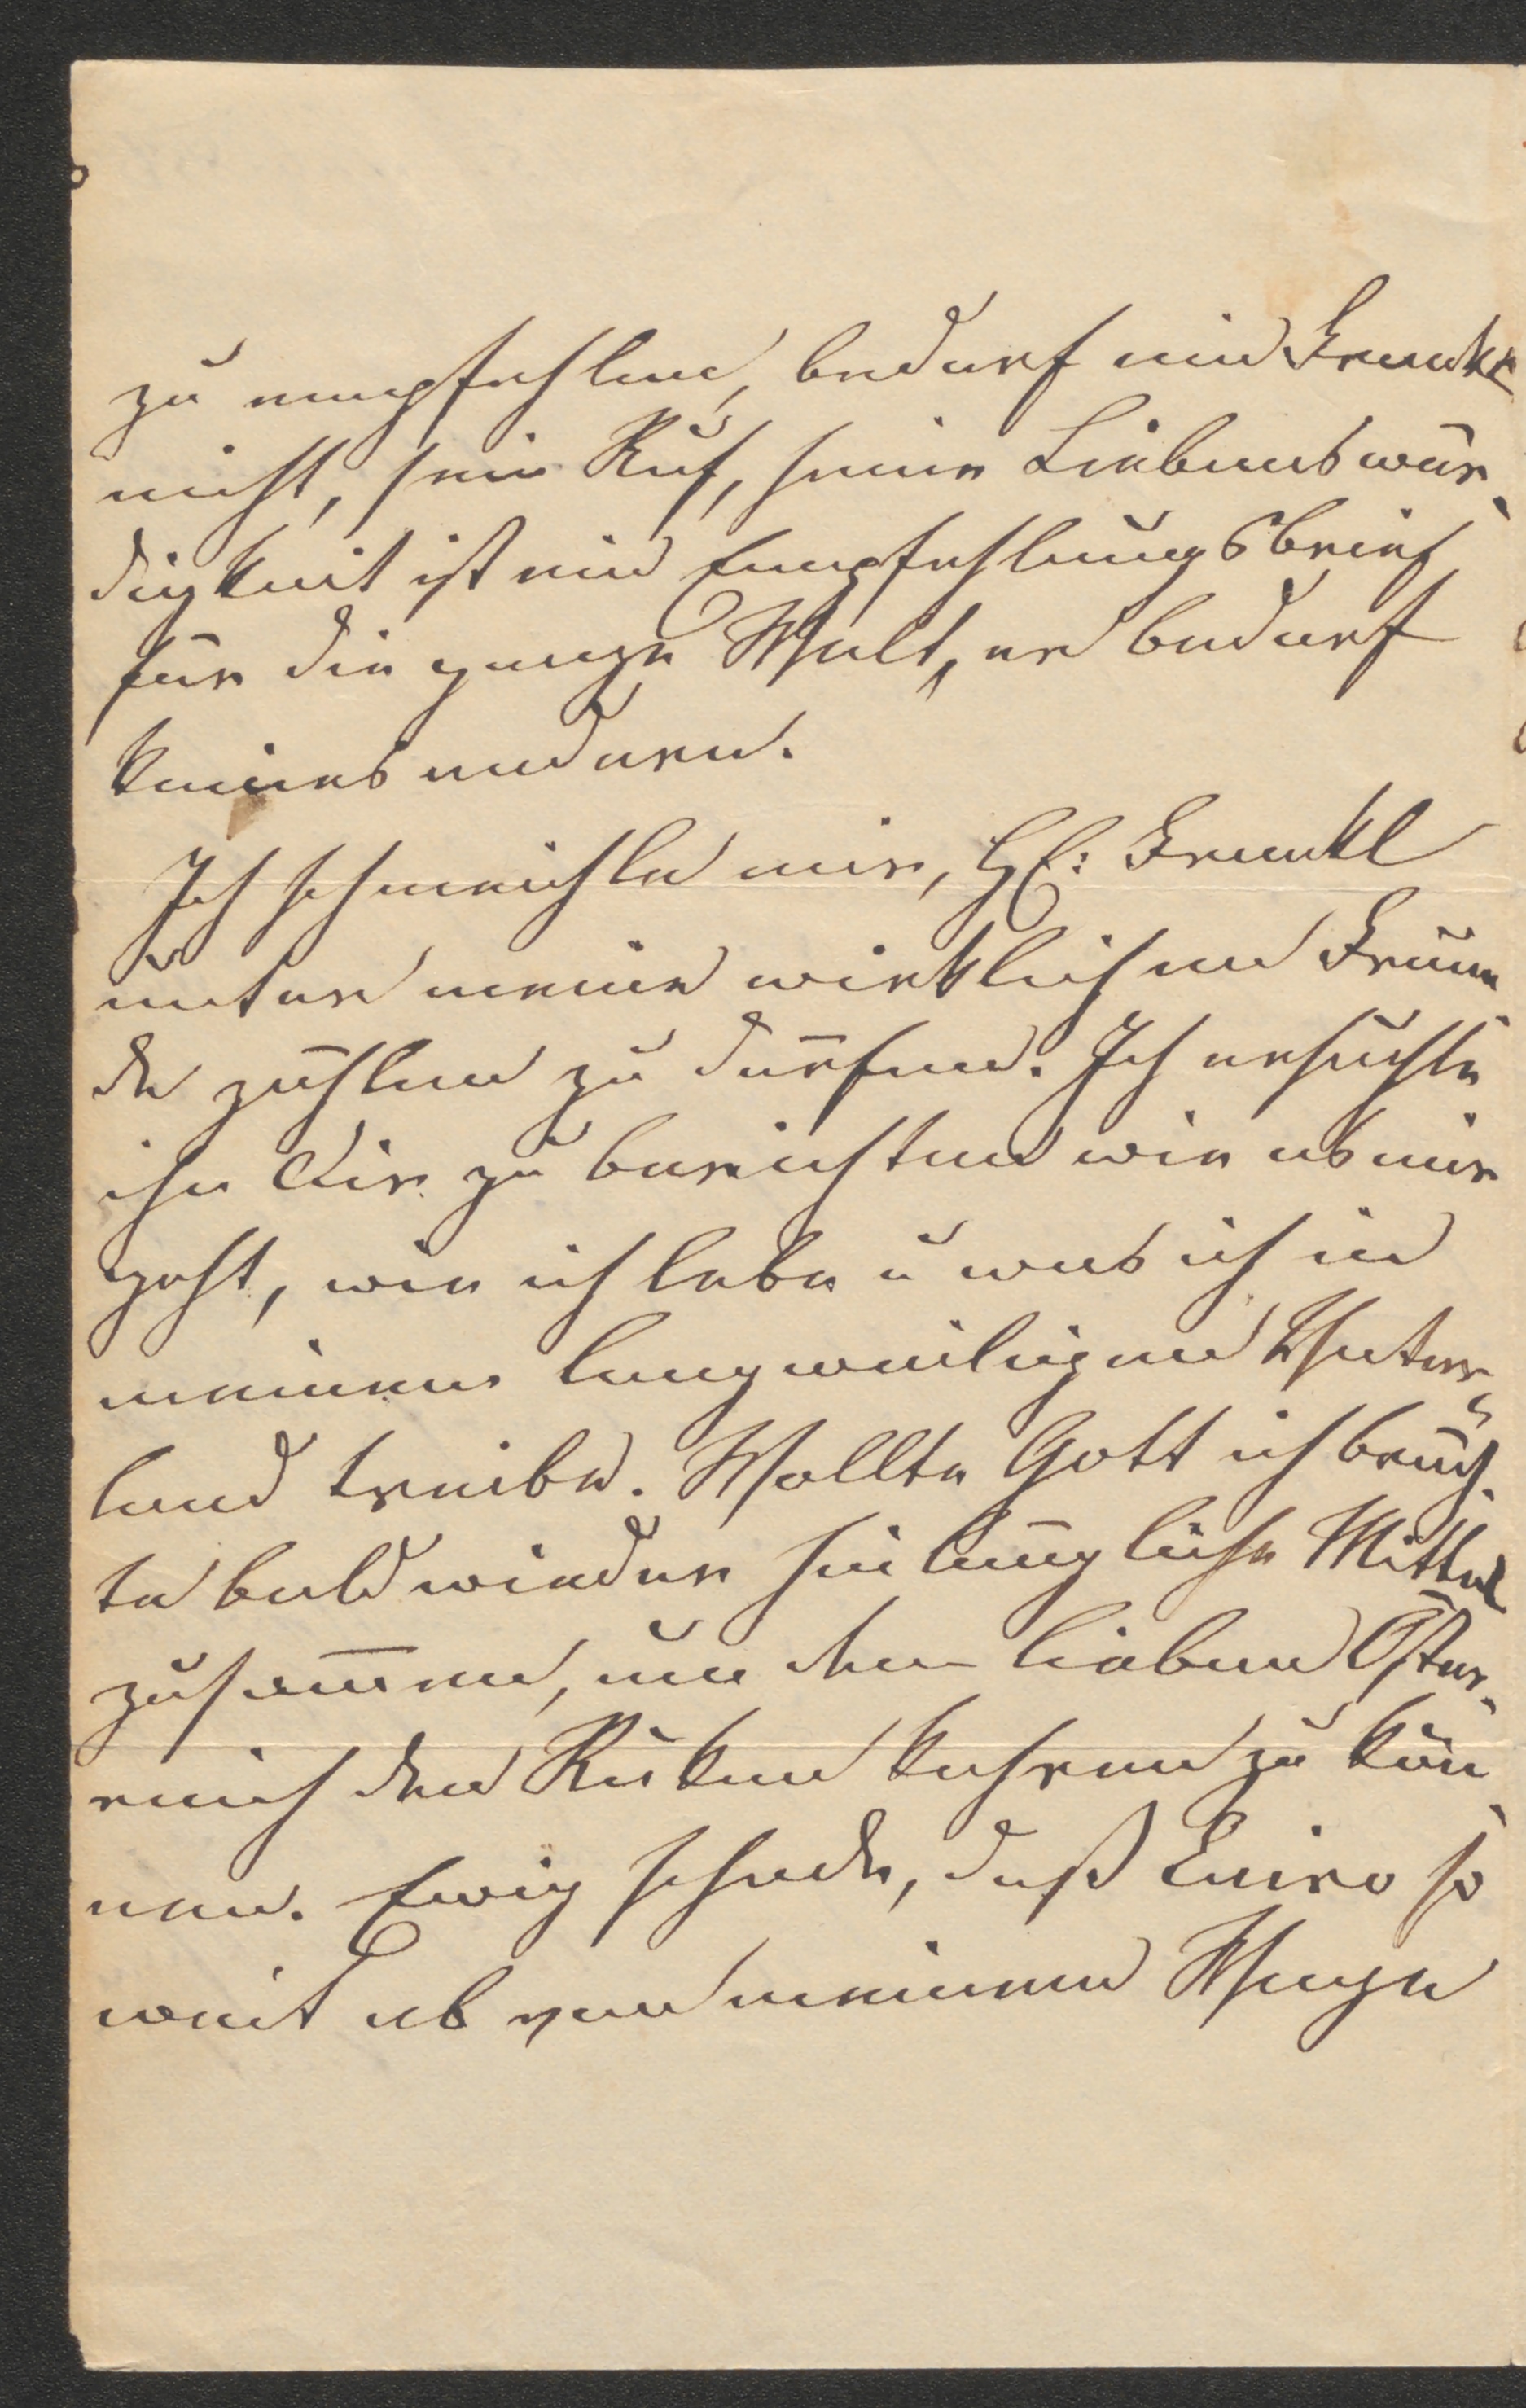 zu empfehlen, bedarf ein Frankl
nicht, sein Ruf, seine Liebenswür-
digkeit ist ein Empfehlungsbrief
für die ganze Welt, er bedarf
keines anderen.
Ich schmeichle mir, H: Frankl
unter meine wirklichen Freun-
de zählen zu dürfen. Ich ersuchte
ihn Dir zu berichten wie es mir
geht, wie ich lebe u was ich in
meinem langweiligen Vater-
land treibe. Wollte Gott ich bräch-
te bald wieder hinlängliche Mittel
zusammen, um dem lieben Öster-
reich den Rüken kehren zu kön-
nen. Ewig schade, daß Cairo so
weit ab von meinem Wege